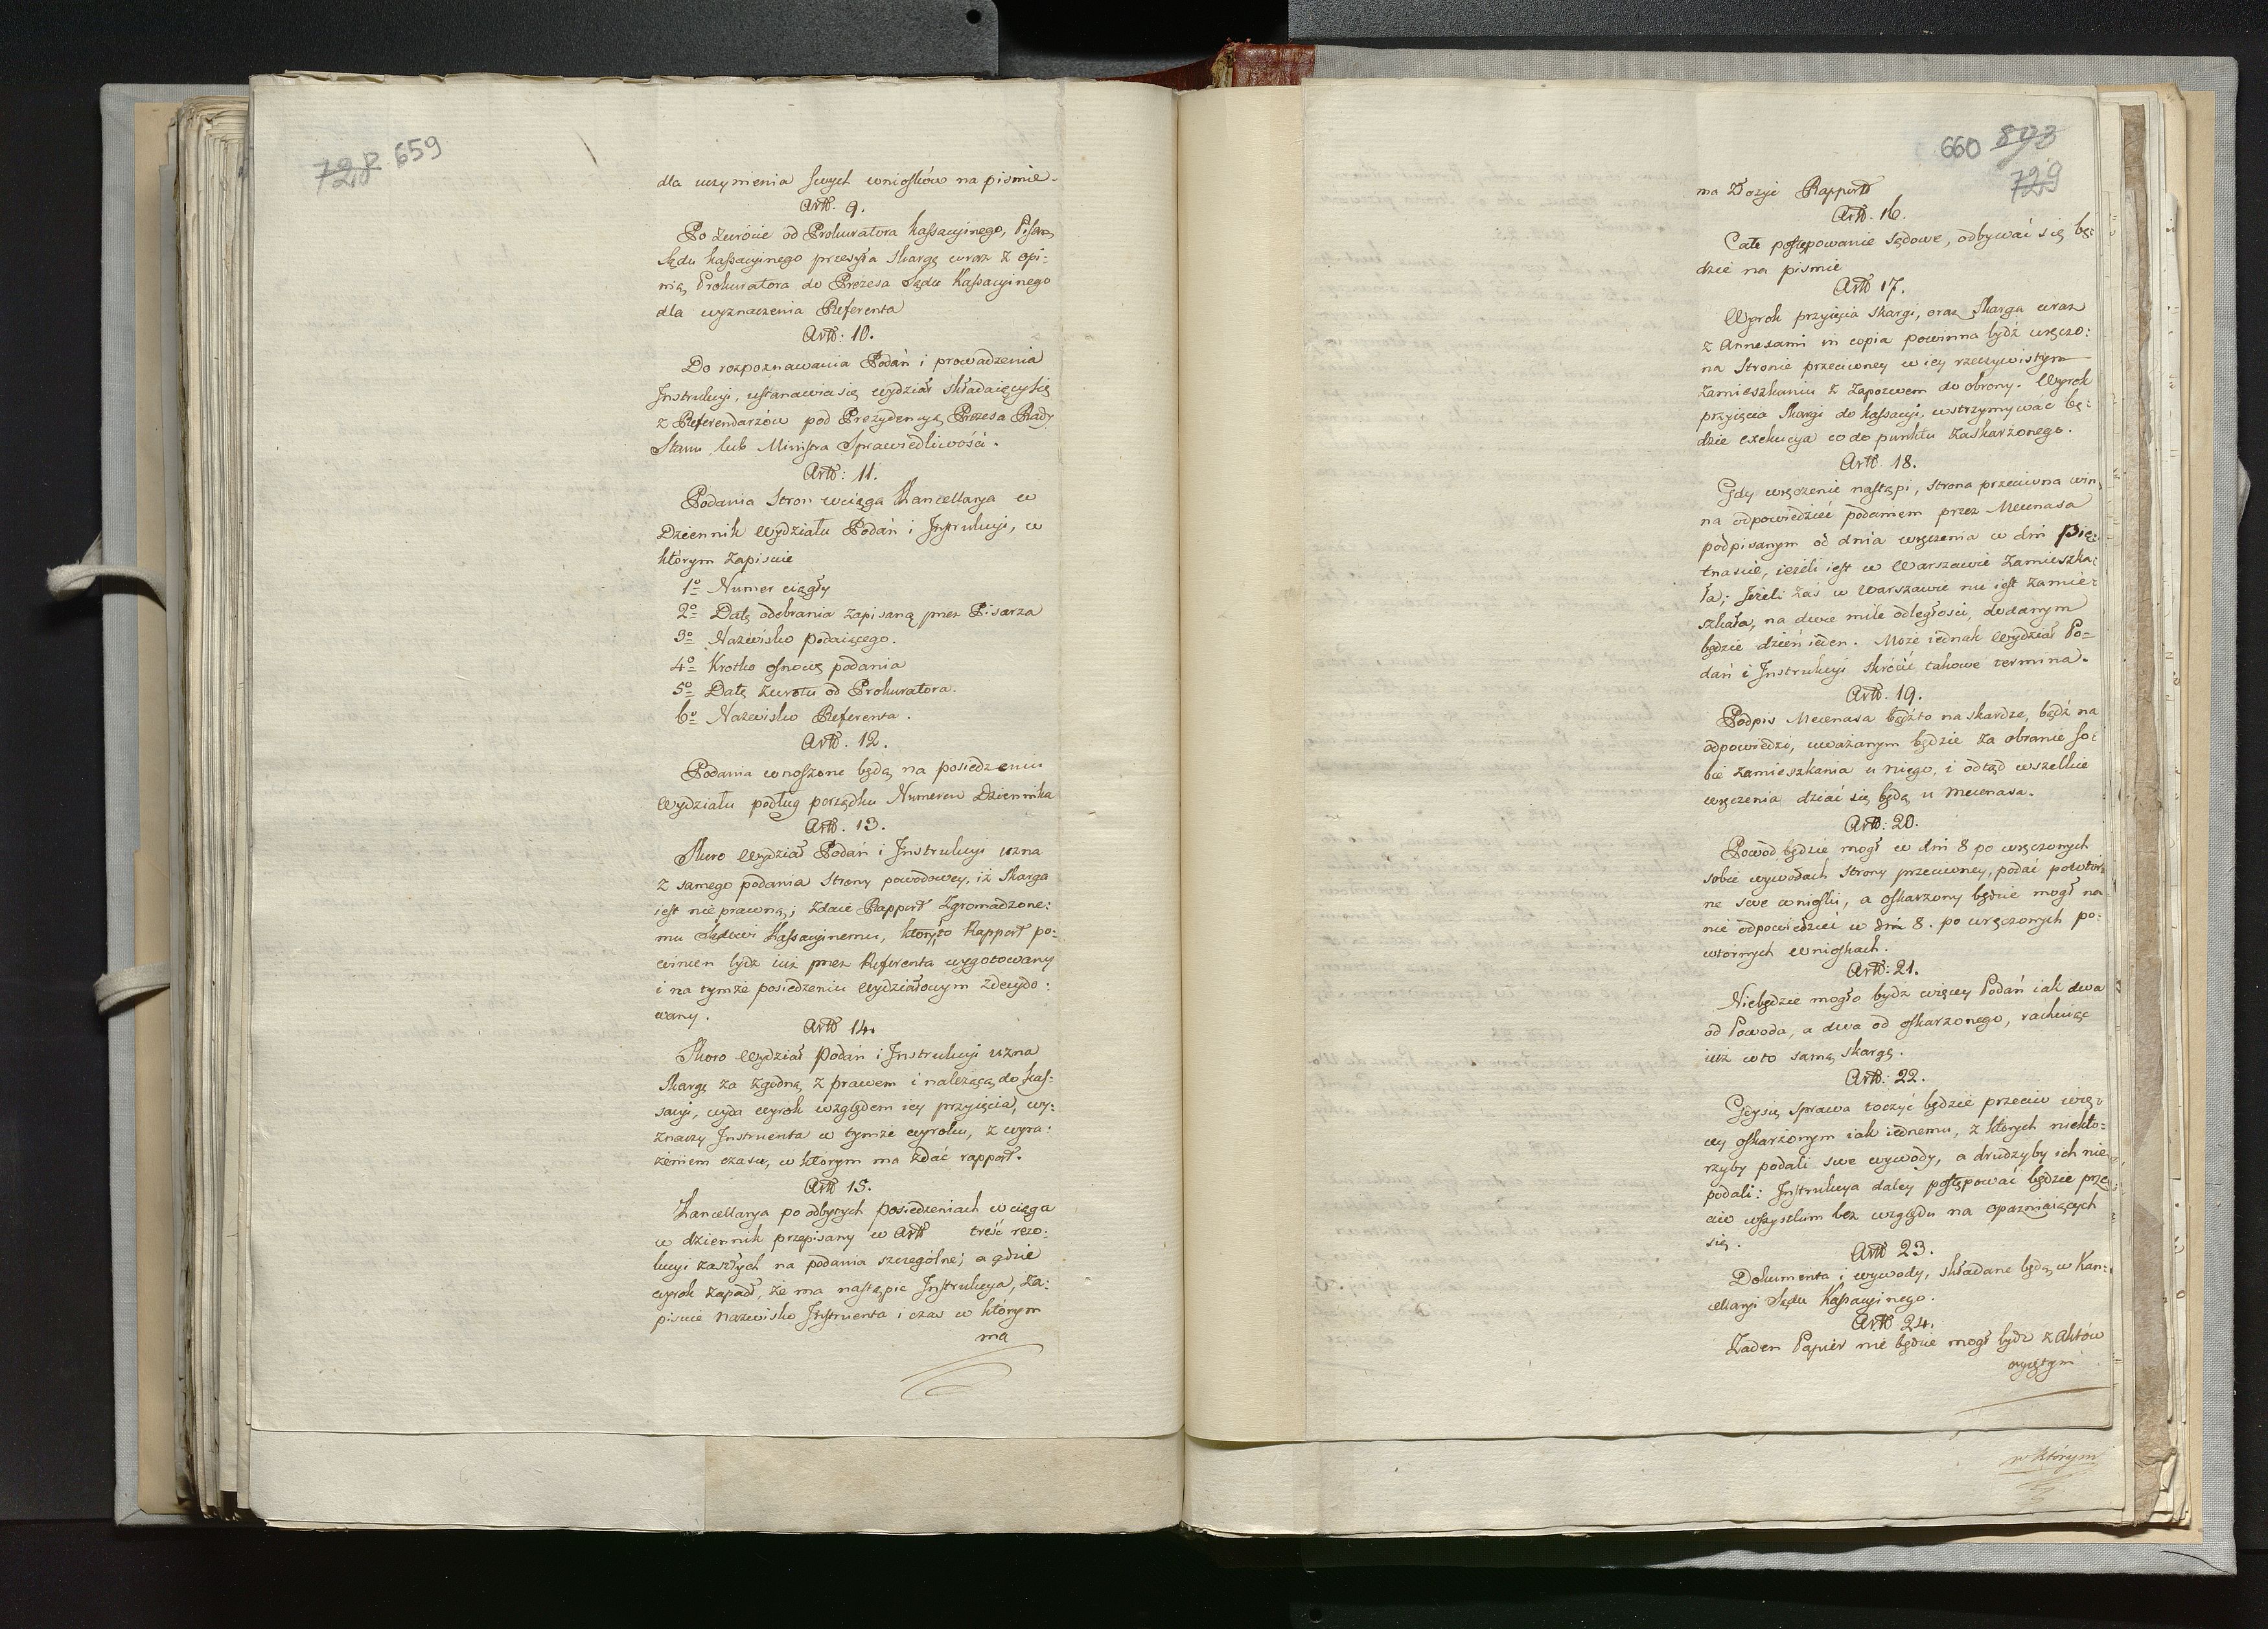 728 659
dla uczynienia swych wniosków na piśmie.
Artł. 9.
Po zwrócie od Prokuratora kassacyinego, Pisarz
Sądu kassacyinego przesyła skargę wraz z opi:
nią Prokuratora do Prezesa Sądu Kassacyinego
dla wyznaczenia Referenta
Artł: 10.
Do rozpoznawania Podań i prowadzenia
Instrukcyi, ustanawia się wydział składaiący się
z Referendarzów pod Prezydencyą Prezesa Rady
Stanu lub Ministra Sprawiedliwości.
Artł: 11.
Podania Stron wciąga Kancellarya w
Dziennik wydziału Podań i Instrukcyi, w
którym zapisuie
1o Numer ciągły
2o Datę odebrania zapisaną przez Pisarza
3o Nazwisko podaiącego.
4o Krotko osnowę podania
5o Datę zwrotu od Prokuratora.
6o Nazwisko Referenta.
Artł. 12.
Podania wnoszone będą na posiedzeniu
wydziału podług porządku Numerów Dziennika
Artł. 13.
Skoro wydział Podań i Instrukcyi uzna
z samego podania Strony powodowey, iż skarga
iest nie prawną; zdaie Rapport zgromadzone:
mu Sądowi Kassacyinemu, któryto Rapport po:
winien bydź iuż przez Referenta wygotowany
i na tymże posiedzeniu wydziałowym zdecydo:
wany.
Artł 14.
Skoro wydział Podań i Instrukcyi uzna
Skargę za zgodną z prawem i należącą do kas:
sacyi, wyda wyrok względem iey przyięcia, wy:
znaczy Instruenta w tymże wyroku, z wyra:
żeniem czasu, w którym ma zdać rapport.
Artł 15.
Kancellarya po odbytych posiedzeniach wciąga
w dziennik przepisany w Artł treść rezo:
lucyi zaszłych na podania szczególne; a gdzie
wyrok zapadł, że ma nastąpić Instrukcya, za:
pisuie nazwisko Instruenta i czas w którym
ma
660 893
729
ma złożyć Rapport
Artł. 16.
Całe postępowanie sądowe, odbywać się bę:
dzie na piśmie
Artł 17.
Wyrok przyięcia skargi, oraz skarga wraz
z Annexami in copia powinna bydź wręczo:
na Stronie przeciwney w iey rzeczywistym
zamieszkaniu z zapozwem do obrony. Wyrok
przyięcia skargi do kassacyi, wstrzymywać bę:
dzie exekucya co do punktu zaskarżonego.
Artł 18.
Gdy wręczenie nastąpi, strona przeciwna win
na odpowiedzieć podaniem przez Mecenasa
podpisanym od dnia wręczenia w dni Pię:
tnaście, ieżeli iest w Warszawie zamieszka:
ła; Jeżeli zaś w Warszawie nie iest zamie:
szkała, na dwie mile odległości, dodanym
będzie dzień ieden. Może iednak wydział Po=
dań i Instrukcyi skrócić takowe termina.
Artł. 19.
Podpis Mecenasa bądźto na skardze, bądź na
odpowiedzi, uważanym będzie za obranie so:
bie zamieszkania u niego, i odtąd wszelkie
wręczenia dziać się będą u Mecenasa.
Artł: 20.
Powod będzie mogł w dni 8 po wręczonych
sobie wywodach strony przeciwney, podać powtór
ne swe wnioski, a oskarżony będzie mogł na
nie odpowiedzieć w dni 8. po wręczonych po:
wtórnych wnioskach.
Artł: 21.
Niebędzie mogło bydź więcey Podań iak dwa
od Powoda, a dwa od oskarżonego, rachuiąc
iuż w to samą skargę.
Artł: 22.
Gdysię sprawa toczyć będzie przeciw wię:
cey oskarżonym iak iednemu, z których niektó:
rzyby podali swe wywody, a drudzyby ich nie
podali: Instrukcya daley postępować będzie prze:
ciw wszystkim bez względu na opaźniaiących
się.
Artł 23.
Dokumenta i wywody, składane będą w Kan:
cellaryi Sądu Kassacyinego.
Artł 24.
Żaden Papier nie będzie mogł bydź z Aktów
wyiętym
w którym